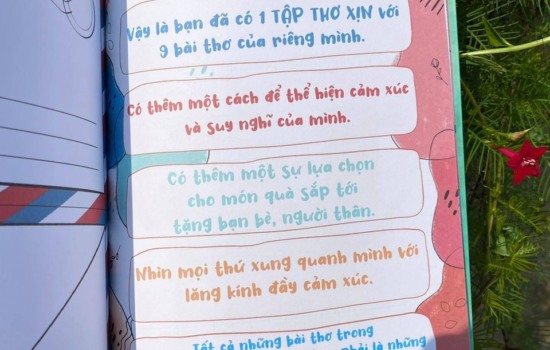 Vậy là bạn đã có 1 TẬP THƠ XỊN với
9 bài thơ của riêng mình.
Có thêm một cách để thể hiện cảm xúc
và suy nghĩ của mình.
Có thêm một sự lựa chọn
cho món quà sắp tới
tặng bạn bè, người thân.
Nhìn mọi thứ xung quanh mình với
lăng kính đầy cảm xúc.
Tất cả những bài thơ trong
phải là những